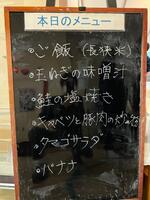 本日のメニュー
・ご飯(長狭米)
・玉ねぎの味噌汁
・鮭の塩焼き
・キャベツと豚肉の炒め
・タマゴサラダ
・バナナ